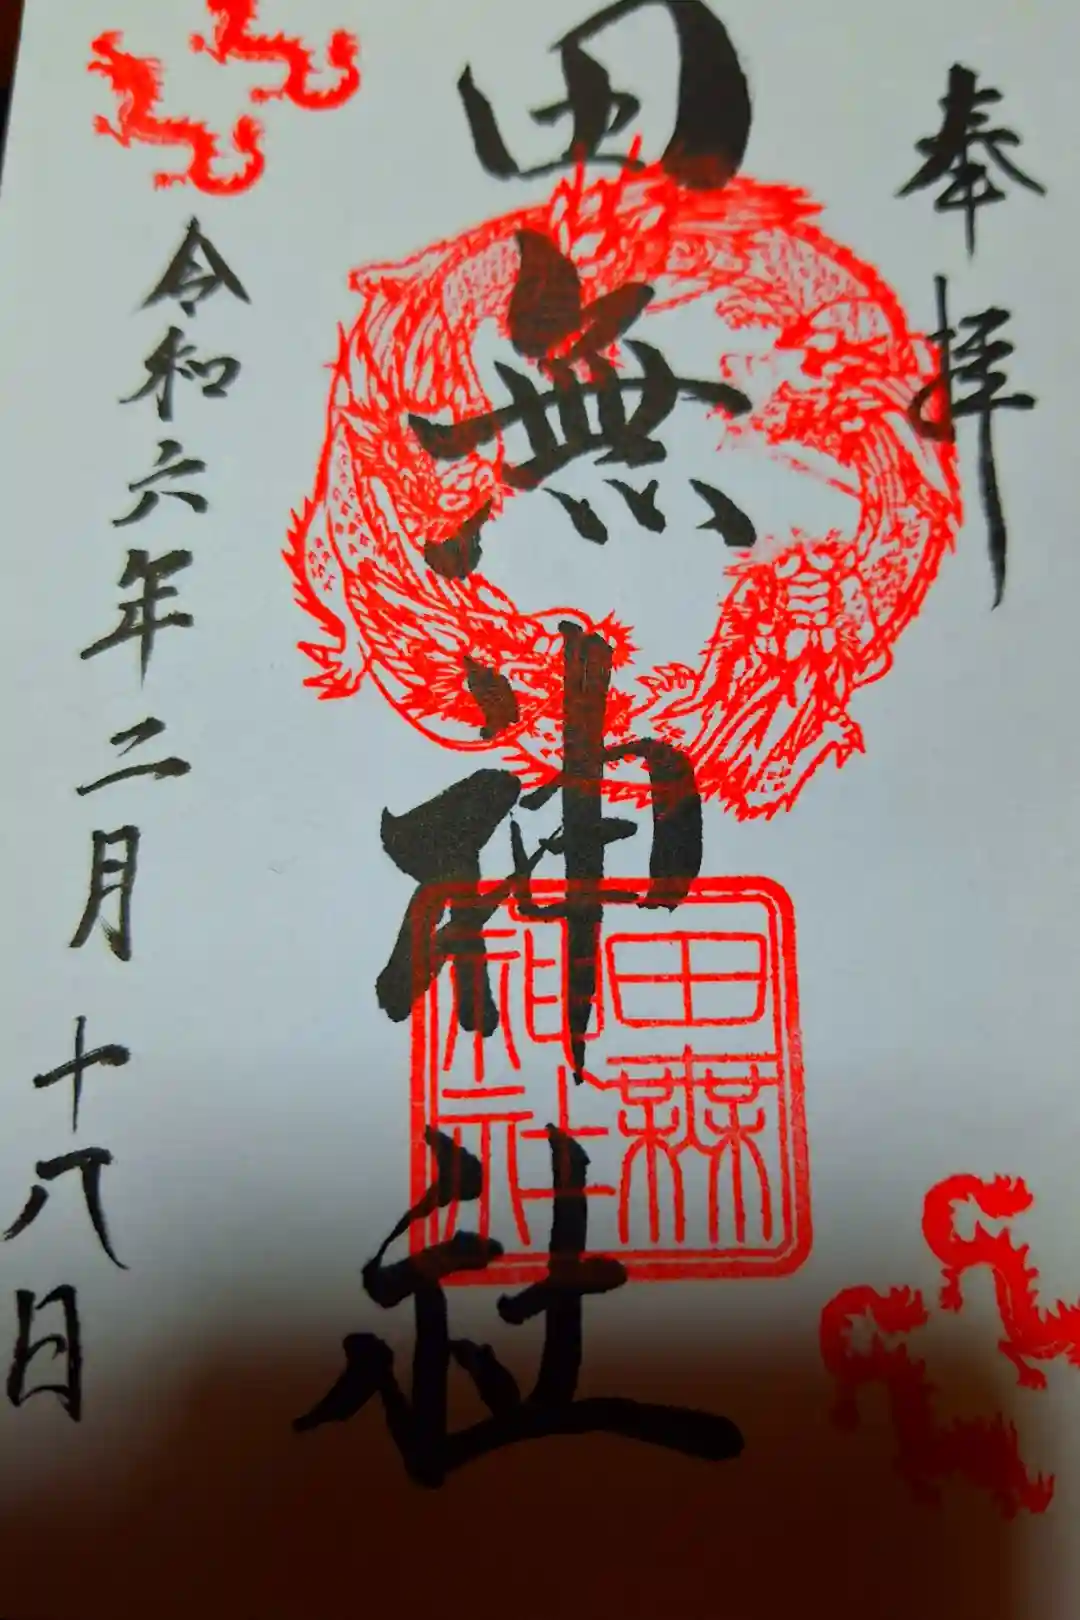 奉拝
田無神社
田無
神社
令和六年二月十八日